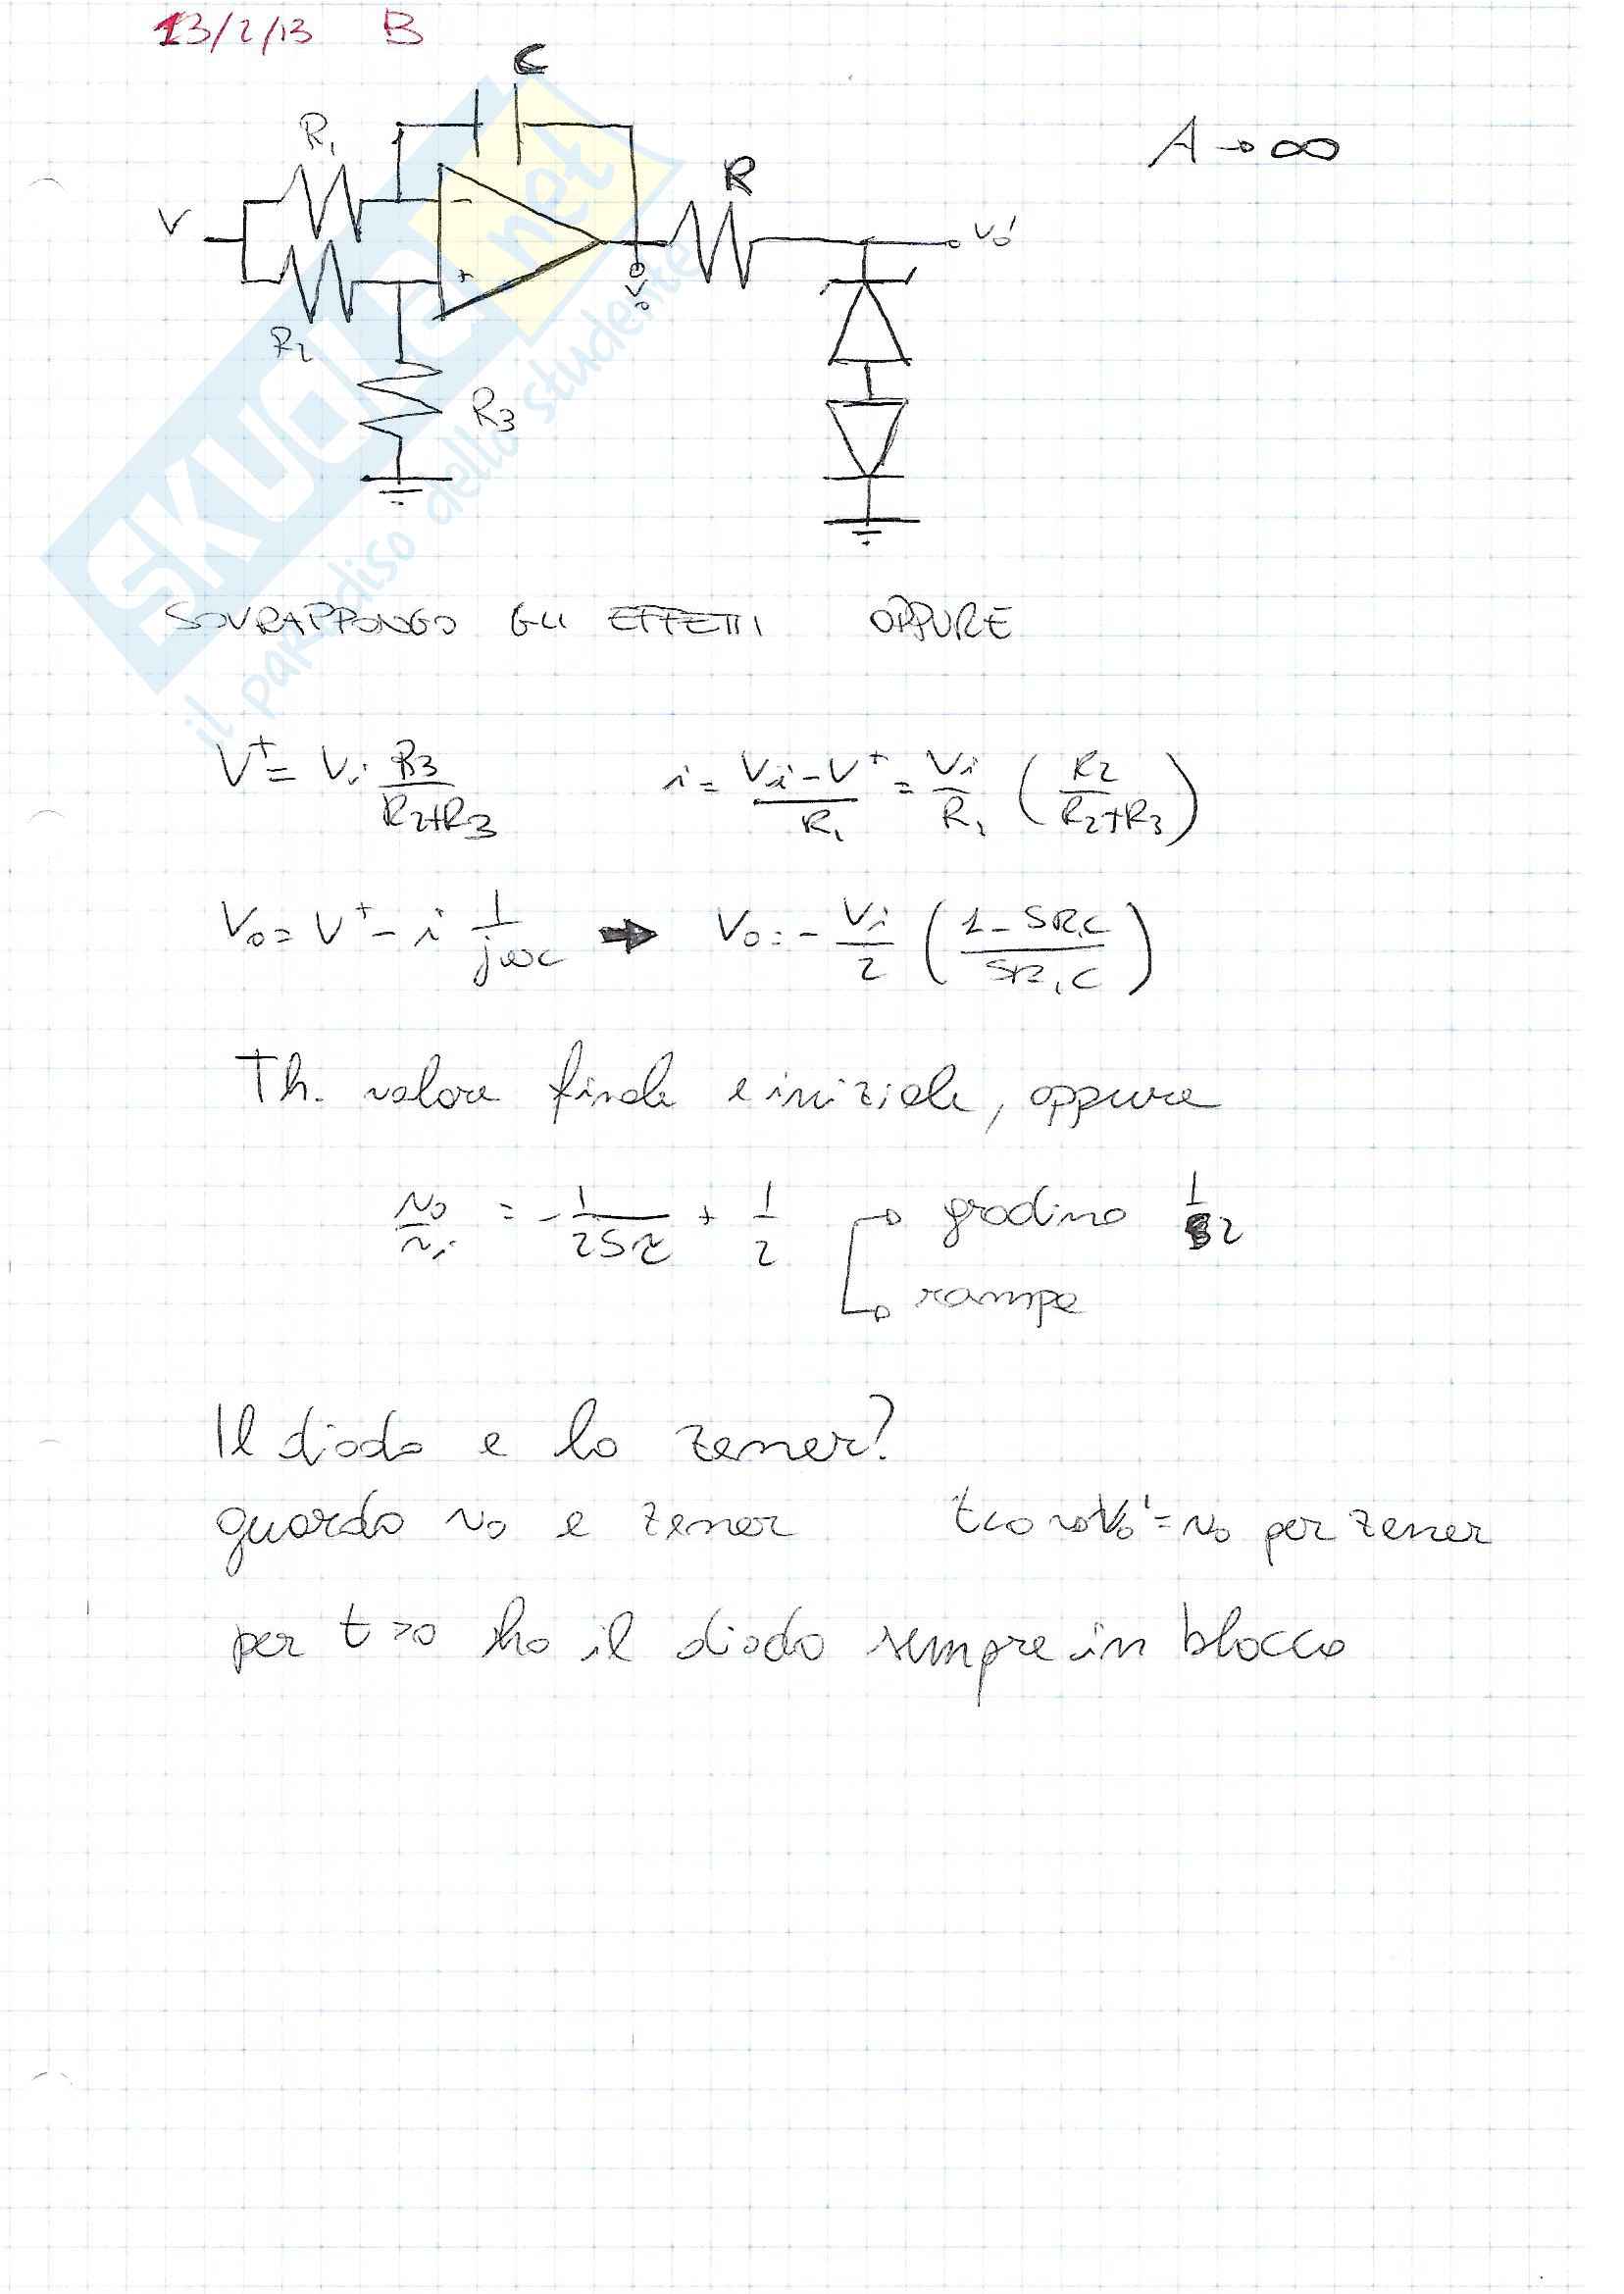 13/2/13 B
C
R1
A → ∞
R
V
-
Vo'
+
Vo
R2
R3
SKUOLA.net
il paradiso dello studente
SOVRAPPONGO GLI EFFETTI OPPURE
V⁺ = Vi R3/(R2+R3) i = (Vi - V⁺)/R1 = Vi/R1 (R2/(R2+R3))
Vo = V⁺ - i 1/(jωc) → Vo = - Vi/2 ((1 - SR1C)/(SR1C))
Th. valore finale e iniziale, oppure
vo/vi = - 1/(2Sτ) + 1/2 → gradino 1/2
→ rampa
Il diodo e lo zener?
guardo vo e zener t<0 Vo' = vo per zener
per t>0 ho il diodo sempre in blocco